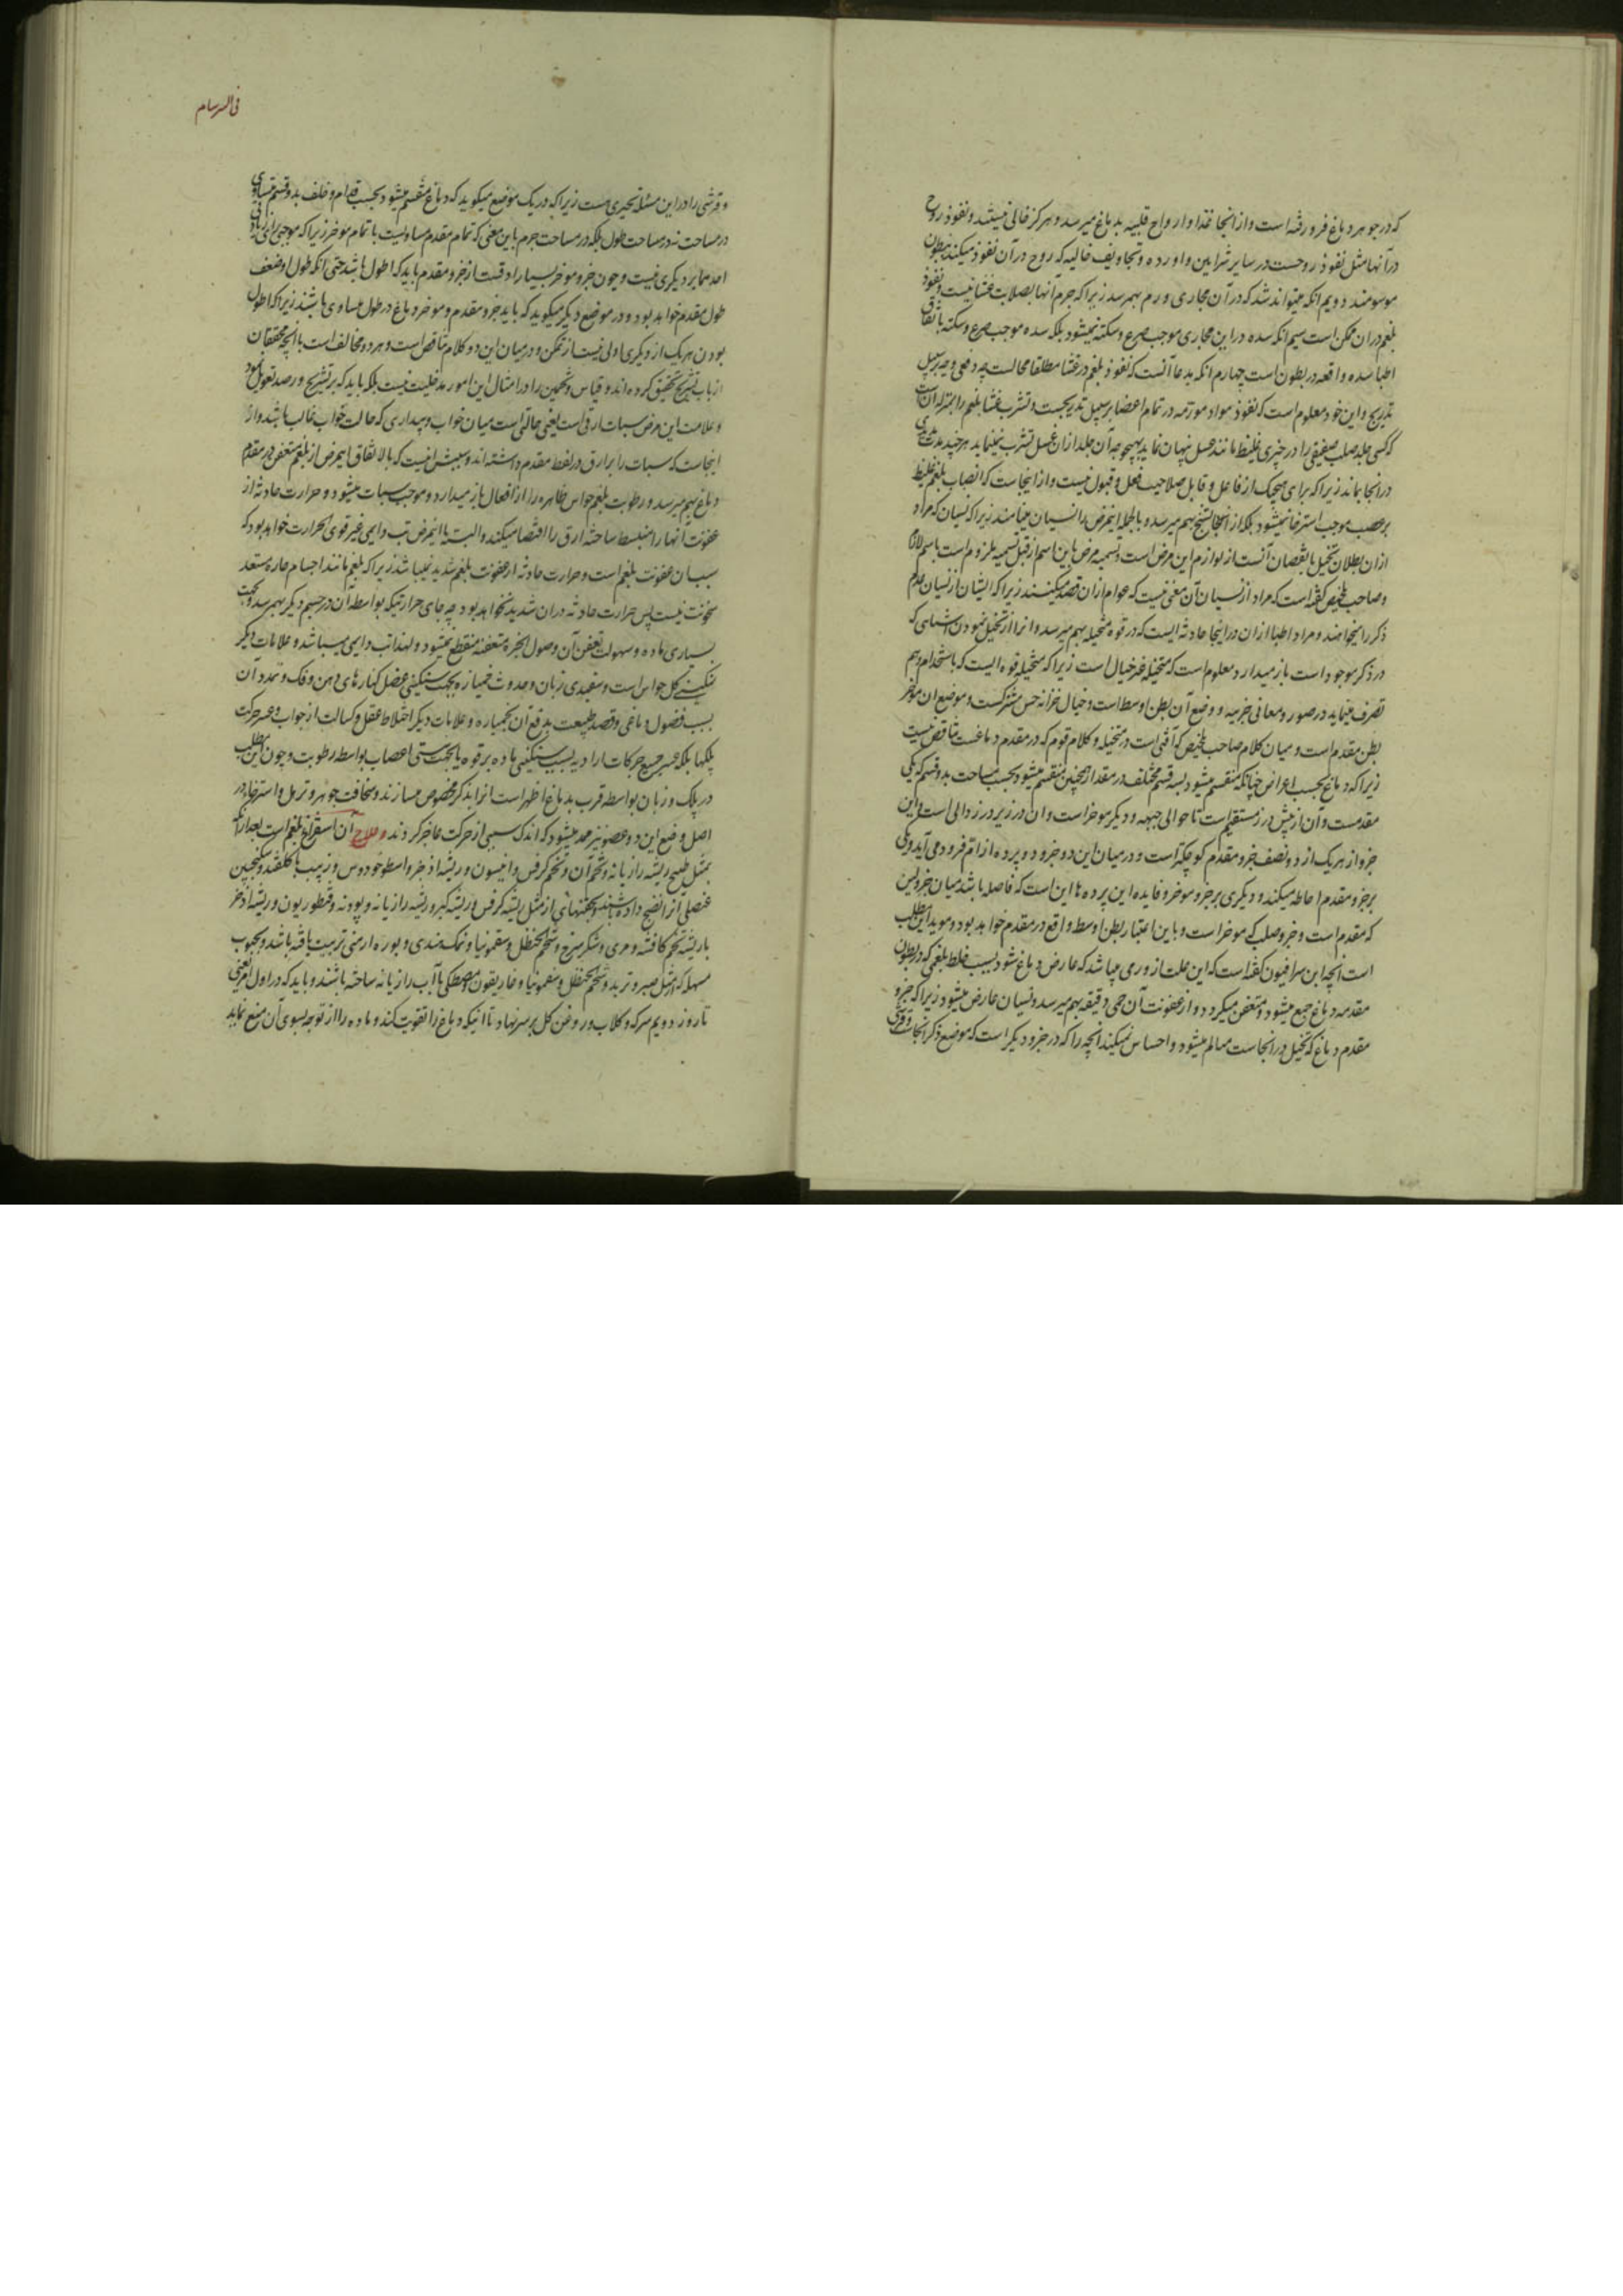 که در جوهر دماغ فرو رفته است و از انجا غذا و ارواح قلبیه بدماغ میرسد و هرکز خالی نیستند و نفوذ روح
در آنها مثل نفوذ روحست در سایر شرایین و اورده و تجاویف خالیه که روح در آن نفوذ میکند ببطون
موسومند دویم انکه میتواند شد که در آن مجاری ورم بهمرسد زیرا که جرم آنها بصلابت غشا نیست و نفوذ
بلغم در ان ممکن است سیم انکه سده در این مجاری موجب صرع و سکته نمیشود بلکه سده موجب صرع و سکته باتفاق
اطبا سده واقعه در بطون است چهارم انکه مدعا آنست که نفوذ بلغم در غشا مطلقا محالست چه دفعی و چه بر سبیل
تدریج و این خود معلوم است که نفوذ مواد مورمه در تمام اعضا بر سبیل تدریجست و تشرب غشا بلغم را بمنزله ان است
که کسی جلد صلب صفیقی را در چیزی غلیظ مانند عسل پنهان نماید بهیچوجه آن جلد از ان عسل تشرب نمینماید هر چند مدت مدیدی
در انجا بماند زیرا که برای هیچیک از فاعل و قابل صلاحیت فعل و قبول نیست و از اینجاست که انصباب بلغم غلیظ
بر عصب موجب استرخا نمیشود بلکه از انجا تشنج بهم میرسد و بالجمله اینمرض را نسیان مینامند زیرا که نسیان که مراد
از ان بطلان تخیل یا نقصان آنست از لوازم این مرض است و تسمیه مرض باین اسم از قبیل تسمیه ملزوم است باسم لازم
و صاحب تلخیص گفته است که مراد از نسیان آن معنی نیست که عوام از ان قصد میکنند زیرا که ایشان از نسیان عدم
ذکر را میخواهند و مراد اطبا از ان در اینجا حادثه ایست که در قوه متخیله بهم میرسد و انرا از تخیل نمودن اشیاهی که
در ذکر موجود است باز میدارد و معلوم است که متخیله غیر خیال است زیرا که متخیله قوه ایست که باستخدام وهم
تصرف مینماید در صور و معانی جزییه و وضع آن بطن اوسط است و خیال خزانه حس مشترکست و موضع ان موخر
بطن مقدم است و میان کلام صاحب تلخیص که آفتی است در متخیله و کلام قوم که در مقدم دماغست تناقض نیست
زیرا که دماغ بحسب اعراض چنانکه منقسم میشود بسه قسم مختلف در مقدار همچنین منقسم میشود بحسب مساحت بدو قسم که یکی
مقدمست و آن از پیش درز مستقیم است تا حوالی جبهه و دیگر موخر است و ان در زیر درز دالی است و این
جزو از هریک از دو نصف جزو مقدم کوچکتر است و در میان این دو جزو دو پرده از ام فرود می آید و یکی
بر جزو مقدم احاطه میکند و دیگری بر جزو موخر و فایده این پرده ها این است که فاصله باشد میان جزو لین
که مقدم است و جزو صلب که موخر است و باین اعتبار بطن اوسط واقع در مقدم خواهد بود و موید این مطلب
است انچه ابن سرافیون گفته است که این علت از ورمی میباشد که عارض دماغ شود بسبب خلط بلغمی که در بطون
مقدمه دماغ جمع میشود و متعفن میکردد و از عفونت آن حمی دقیقه بهم میرسد و نسیان عارض میشود زیرا که جزو
مقدم دماغ که تخیل در انجاست متالم میشود و احساس نمیکند انچه را که در جزو دیگر است که موضع ذکر انجاست
فی السرسام
و قرشی را در این مسئله تحیری هست زیرا که در یک موضع میکوید که دماغ منقسم میشود بحسب قدام و خلف بدو قسم متساوی
در مساحت نه در مساحت طول بلکه در مساحت جرم باین معنی که تمام مقدم مساویست با تمام موخر زیرا که موجبی برای زیادتی
احدهما بر دیکری نیست و چون جزو موخر بسیار ادقست از جزو مقدم باید که اطول باشد حتی آنکه طول او ضعف
طول مقدم خواهد بود و در موضع دیکر میکوید که باید جزو مقدم و موخر دماغ در طول مساوی باشند زیرا که اطول
بودن هریک از دیکری اولی نیست از ممکن و در میان این دو کلام تناقض است و هر دو مخالف است با انچه محققان
ارباب تشریح تحقیق کرده اند و قیاس و تخمین را در امثال این امور مدخلیت نیست بلکه باید که بر تشریح و رصد تعویل نمود
و علامت این مرض سبات ارقی است یعنی حالتی است میان خواب و بیداری که حالت خواب غالب باشد و از
اینجاست که سبات را بر ارق در لفظ مقدم داشته اند و سببش اینست که بالاتفاق اینمرض از بلغم متعفن در مقدم
دماغ بهم میرسد و رطوبت بلغم حواس ظاهره را از افعال باز میدارد و موجب سبات میشود و حرارت حادثه از
عفونت انها را منبسط ساخته ارق را اقتضا میکند و البته با اینمرض تب دایمی غیر قوی الحرارت خواهد بود که
سبب ان عفونت بلغم است و حرارت حادثه از عفونت بلغم شدید نمیباشد زیرا که بلغم مانند اجسام حاره مستعد
سخونت نیست پس حرارت حادثه در ان شدید نخواهد بود چه جای حرارتیکه بواسطه آن در جسم دیکر بهم رسد و بجهت
بسیاری ماده و سهولت تعفن آن وصول ابخره متعفنه منقطع نمیشود و لهذا تب دایمی میباشد و علامات دیکر
سنکینی کل حواس است و سفیدی زبان و حدوث خمیازه بجهت سنکینی عضل کنارهای دهن و فک و تمدد آن
بسبب فضول دماغی و قصد طبیعت بدفع آن بخمیازه و علامات دیکر اختلاط عقل و کسالت از جواب و عسر حرکت
پلکها بلکه عسر جمیع حرکات ارادیه بسبب سنکینی ماده بر قوه یا بجهت سستی اعصاب بواسطه رطوبت و چون این مطلب
در پلک و زبان بواسطه قرب بدماغ اظهر است انرا بذکر مخصوص میسازند و سخافت جوهر و ترهل و استرخا در
اصل وضع این دو عضو نیز ممد میشود که اندک سببی از حرکت عاجز کردند و علاج آن استفراغ بلغم است بعد از آنکه
بمثل طبیخ ریشه رازیانه و تخم آن و تخم کرفس و انیسون و ریشه اذخر و اسطوخودوس و زبیب با کلقند و سکنجبین
عنصلی انرا نضج داده باشند و بحقنهای از مثل ریشه کرفس و ریشه کبر و ریشه رازیانه و پودنه و قنطوریون و ریشه اذخر
با ریشه تخم کافشه و مری و شکر سرخ و شحم الحنظل و سقمونیا و نمک هندی و بوره ارمنی تربیت یافته باشد و بحبوب
مسهله که از مثل صبر و تربد و شحم الحنظل و سقمونیا و غاریقون و مصطکی با آب رازیانه ساخته باشند و باید که در اول اینمرض
تا روز دویم سرکه و کلاب و روغن کل بر سر نهاد تا انیکه دماغ را تقویت کند و ماده را از توجه بسوی آن منع نماید